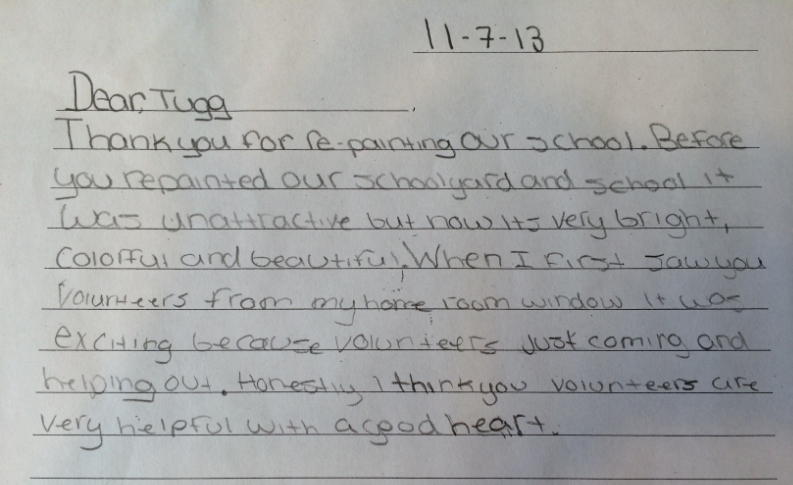 11-7-13
Dear, Tugg
Thank you for re-painting our school. Before
you repainted our schoolyard and school it
was unattractive but now its very bright,
colorful and beautiful. When I first saw you
volunteers from my home room window it was
exciting because volunteers just coming and
helping out. Honestly I think you volunteers are
very helpful with a good heart.